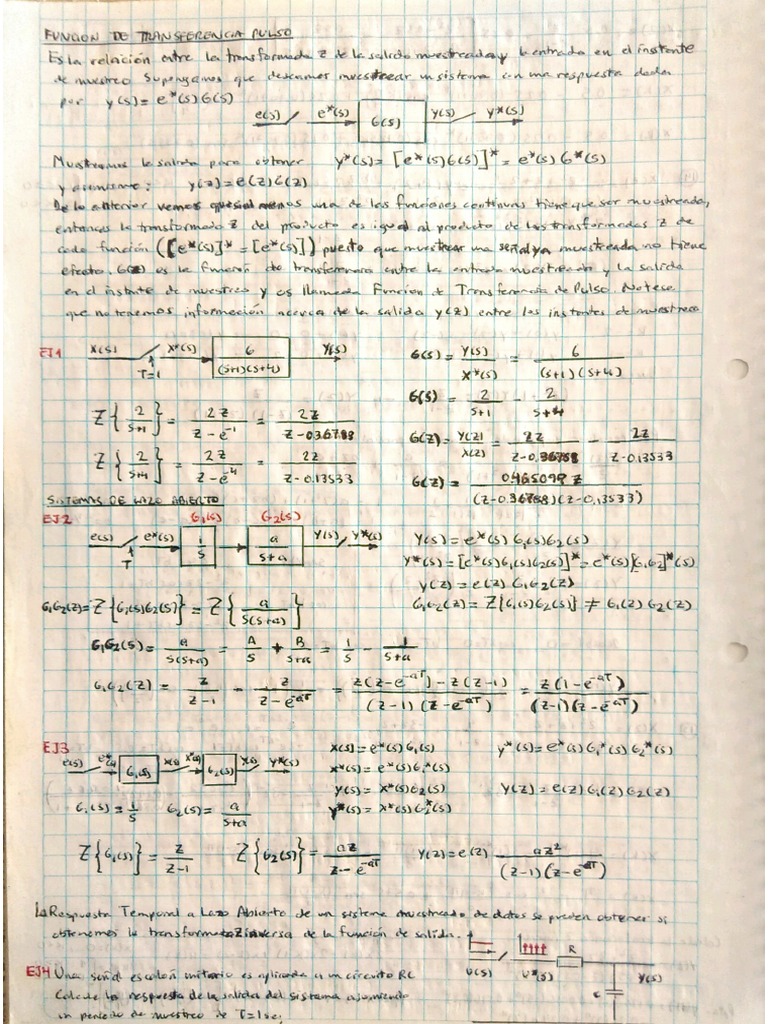 FUNCION DE TRANSFERENCIA PULSO
Es la relación entre la transformada Z de la salida muestreada y la entrada en el instante
de muestreo Supongamos que deseamos muestrear un sistema con una respuesta dada
por y(s) = e*(s) G(s)
e(s) e*(s) G(s) y(s) y*(s)
Muestreamos la salida para obtener y*(s) = [e*(s)G(s)]* = e*(s) G*(s)
y asimismo: y(z) = e(z)G(z)
De lo anterior vemos que si al menos una de las funciones continuas tiene que ser muestreada,
entonces la transformada Z del producto es igual al producto de las transformadas Z de
cada función ([e*(s)]* = [e*(s)]) puesto que muestrear una señal ya muestreada no tiene
efecto. G(z) es la función de transferencia entre la entrada muestreada y la salida
en el instante de muestreo y es llamada Función de Transferencia de Pulso. Notese
que no tenemos información acerca de la salida y(z) entre los instantes de muestreo
EJ1 X(s) X*(s) 6/((s+1)(s+4)) Y(s) G(s) = Y(s)/X*(s) = 6/((s+1)(s+4))
T=1
G(s) = 2/(s+1) - 2/(s+4)
Z{2/(s+1)} = 2z/(z-e^-1) = 2z/(z-0.36788)
G(z) = Y(z)/X(z) = 2z/(z-0.36788) - 2z/(z-0.13533)
Z{2/(s+4)} = 2z/(z-e^-4) = 2z/(z-0.13533)
G(z) = 0.465099 z/((z-0.36788)(z-0.13533))
SISTEMAS DE LAZO ABIERTO
EJ2 G1(s) G2(s)
e(s) e*(s) 1/s a/(s+a) Y(s) Y*(s) Y(s) = e*(s) G1(s)G2(s)
T
Y*(s) = [e*(s)G1(s)G2(s)]* = e*(s)[G1G2]*(s)
Y(z) = e(z) G1G2(z)
G1G2(z) = Z{G1(s)G2(s)} = Z{a/(s(s+a))} G1G2(z) = Z{G1(s)G2(s)} ≠ G1(z)G2(z)
G1G2(s) = a/(s(s+a)) = A/s + B/(s+a) = 1/s - 1/(s+a)
G1G2(z) = z/(z-1) - z/(z-e^-aT) = (z(z-e^-aT) - z(z-1))/((z-1)(z-e^-aT)) = z(1-e^-aT)/((z-1)(z-e^-aT))
EJ3 e(s) e*(s) G1(s) X(s) X*(s) G2(s) Y(s) Y*(s)
X(s) = e*(s) G1(s) Y*(s) = e*(s) G1*(s) G2*(s)
X*(s) = e*(s) G1*(s)
Y(s) = X*(s) G2(s) Y(z) = e(z) G1(z) G2(z)
G1(s) = 1/s G2(s) = a/(s+a) Y*(s) = X*(s) G2*(s)
Z{G1(s)} = z/(z-1) Z{G2(s)} = az/(z-e^-aT) Y(z) = e(z) az²/((z-1)(z-e^-aT))
La Respuesta Temporal a Lazo Abierto de un sistema muestreado de datos se pueden obtener si
obtenemos la transformada Z inversa de la función de salida.
EJ4 Una señal escalón unitario es aplicada a un circuito RC
Calcule la respuesta de la salida del sistema asumiendo
un periodo de muestreo de T=1se
U(s) U*(s) R C Y(s)